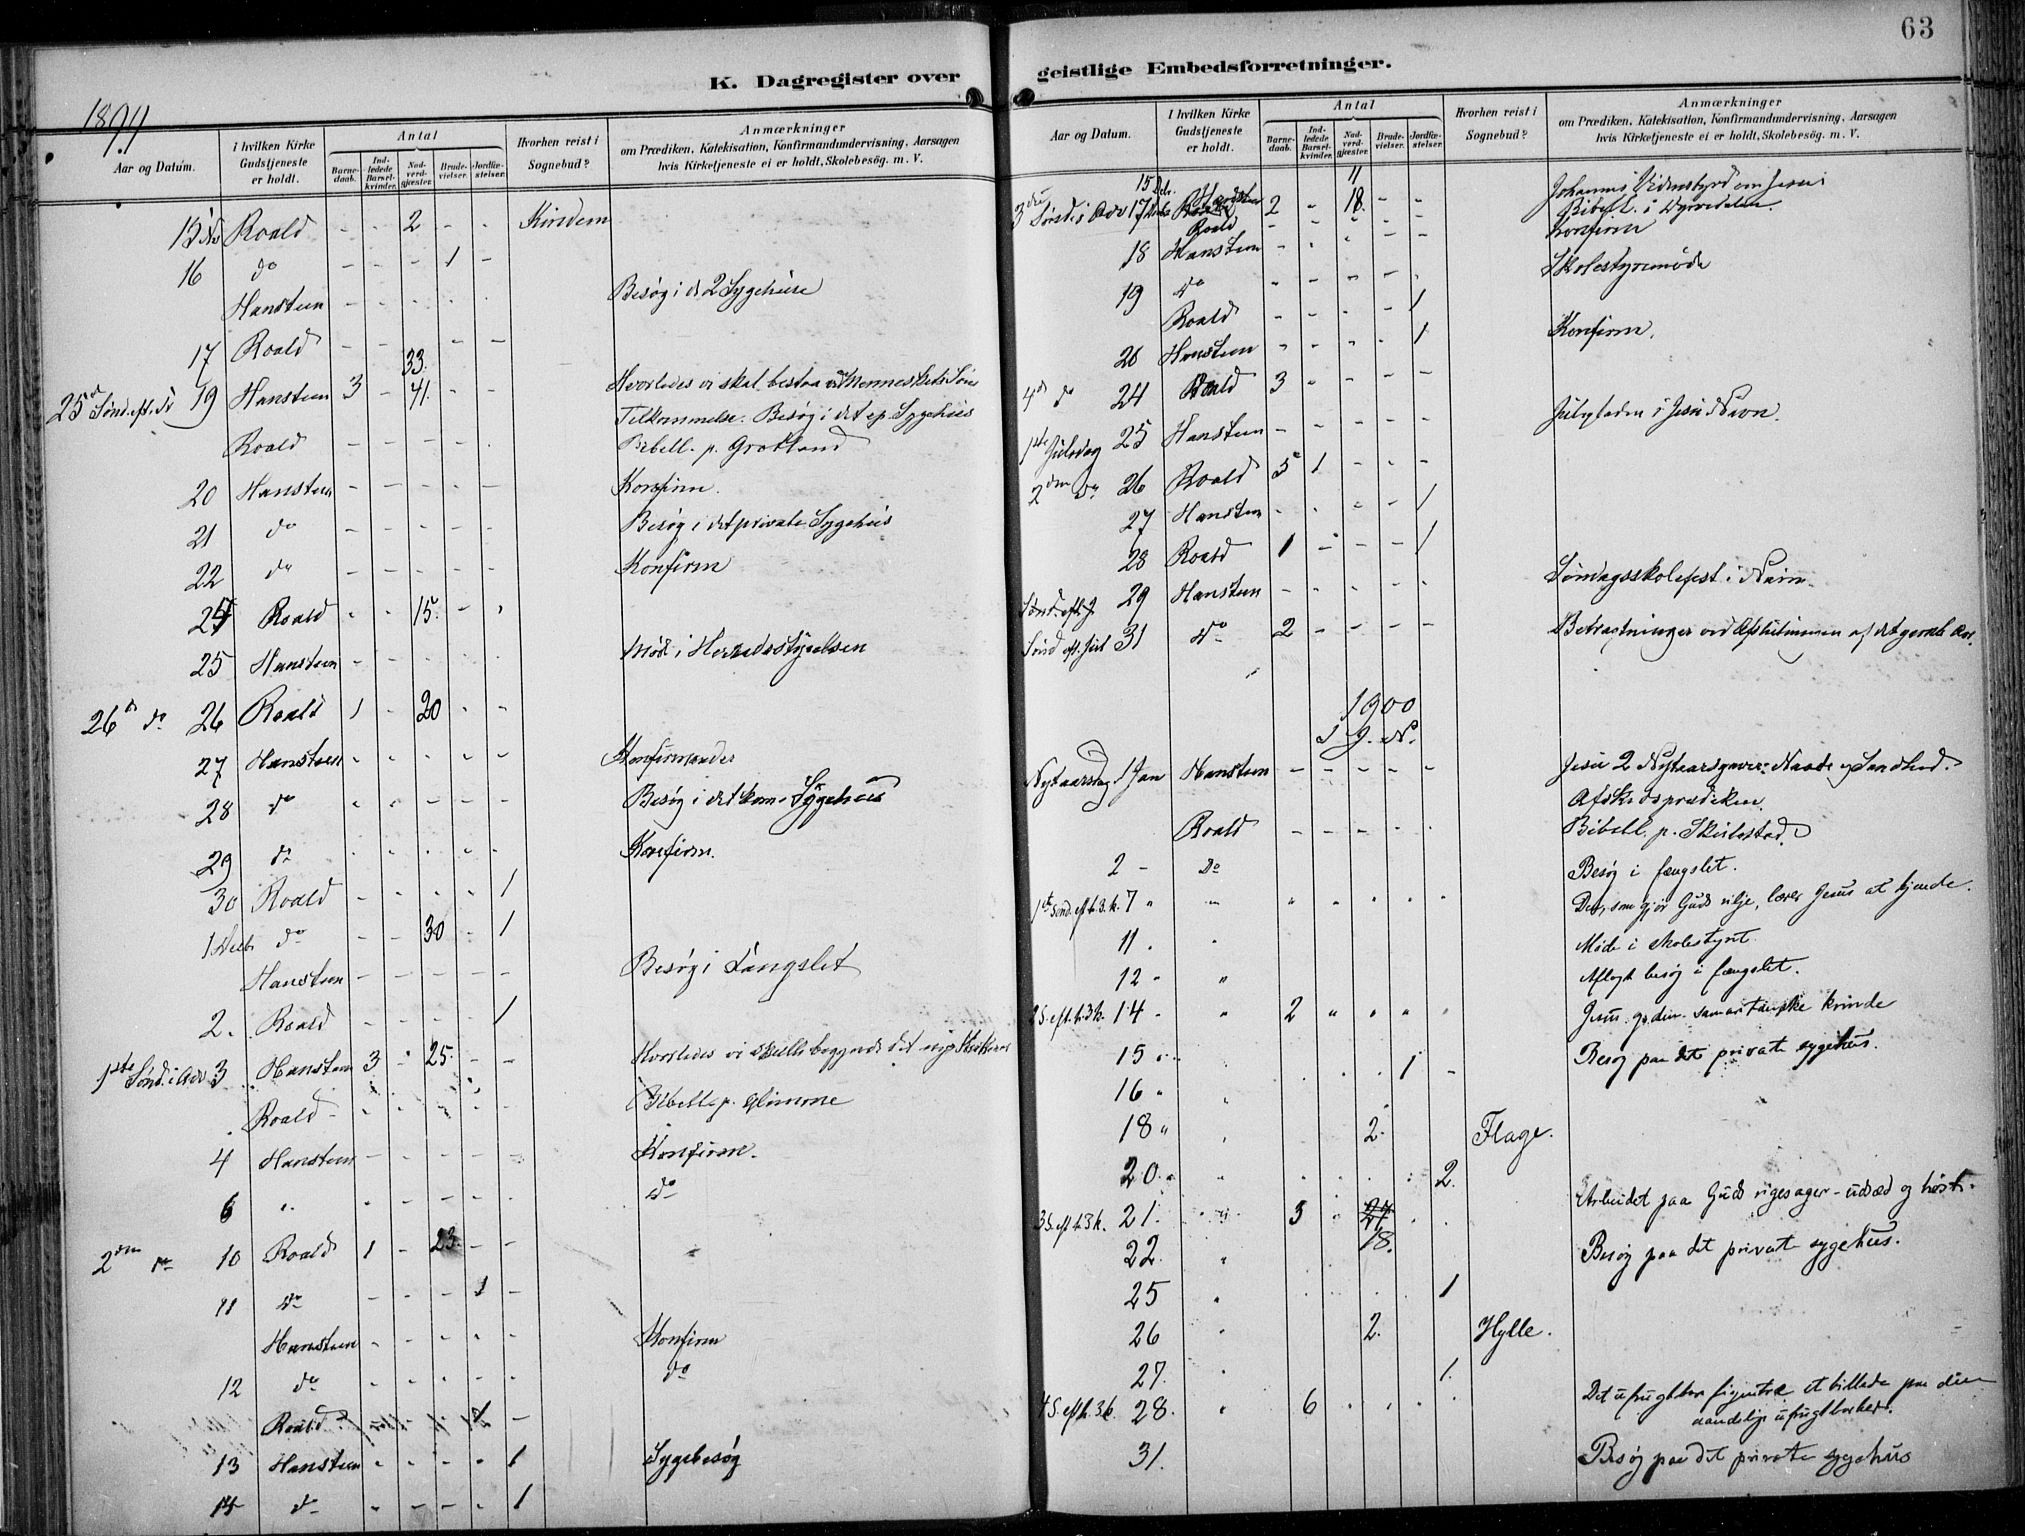 63
K. Dagregister over geistlige Embedsforretninger.
1899
Aar og Datum. I hvilken Kirke Gudstjeneste er holdt. Antal Barnedaab. Indledede Barselkvinder. Nadverdgjæster. Brudevielser. Jordfæstelser. Hvorhen reist i Sognebud? Anmærkninger om Prædiken, Katekisation, Konfirmandundervisning, Aarsagen hvis Kirketjeneste ei er holdt, Skolebesög. m. V.
13 Roald - - 2 - -
16 do - - - 1 -
Hansteen - - - - - Besøg i de 2 Sygehuse
17 Roald - - 33. - -
25d Sønd. eft. Tr 19 Hansteen 3 - 41. - - Hvorledes vi skal bestaa ved Menneskets Søns
Tilkommelse. Besøg i det ep. Sygehus
Roald - - - - - Bibell. p. Grotland
20 Hansteen - - - - - Konfirm.
21 do - - - - - Besøg i det private Sygehus
22 do - - - - - Konfirm
24 Roald - - 15. - -
25 Hansteen - - - - - Møde i Herredsstyrelsen
26d do 26 Roald 1 - 20 - -
27 Hansteen - - - - - Konfirmander
28 do - - - - - Besøg i det kom. Sygehus
29 do - - - - - Konfirm.
30 Roald - - - - 1
1 Decb. do - - 30 - 1
Hansteen - - - - - Besøg i Fængslet
2. Roald - - - - 1
1ste Sønd. i Adv 3 Hansteen 3 - 25. - - Hvorledes vi skulle begynde det nye Kirkeaar
Roald - - - - - Bibell. p. Glimme
4 Hansteen - - - - - Konfirm.
6 " - - - - - do
2den do 10 Roald 1 - 23. - -
11 do - - - 1 -
Hansteen - - - - - Konfirm
12 do - - - - - do
Roald
13 Hansteen - - - - 1 Sygebesøg
14 do - - - - 1
Aar og Datum. I hvilken Kirke Gudstjeneste er holdt. Antal Barnedaab. Indledede Barselkvinder. Nadverdgjæster. Brudevielser. Jordfæstelser. Hvorhen reist i Sognebud? Anmærkninger om Prædiken, Katekisation, Konfirmandundervisning, Aarsagen hvis Kirketjeneste ei er holdt, Skolebesög. m. V.
15 Dcb. 11
3die Sønd i Adv 17 Hansteen 2 - 18. - - Johannes' Vidnesbyrd om Jesus
Roald - - - - - Bibell. i Dyrvedalen.
18 Hansteen - - - - - Konfirm
19 do - - - - - Skolestyremøde
Roald - - - - 1
20 Hansteen - - - - 1 Konfirm.
4d do 24 Roald 3 - - - -
1ste Juledag 25 Hansteen - - - - - Juleglæden i Jesu Navn.
2den do 26 Roald 5 1 - - -
27 Hansteen - - - - 1
28 Roald 1 - - - 1
29 Hansteen - - - - - Søndagsskolefest i
Sønd eft. Jul 31 do 2 - - - - Betragtninger ved Afslutningen af det gamle Aar.
1900
I J. N.
Nytaarsdag 1 Jan Hansteen - - - - - Jesu 2 Nytaarsgaver: Naade og Sandhed.
Afskedsprædiken.
Roald - - - - - Bibell. p. Skielestad.
2 - do Besøg i fængslet.
1ste Sønd. eft h. 3. k. 7 " " " " " " " Den, som gjør Guds vilje, lærer Jesus at kjende.
11. " Møde i skolestyret.
12 - " Aflagt besøg i fængslet.
2 S. eft. h. 3 k. 14 - " 2 " " " " Jesus og den samaritanske kvinde
15 " Besøg paa det private sygehus.
16 " " 1 -
18 " " 2. Flage.
20. " 2.
3 S. eft. h. 3 k. 21. " 3 24 Arbeidet paa Guds rigesager - udsæd og høst.
22. " 18. Besøg paa det private sygehus.
25 " 1
26 " 2. Hylle.
27. " 1.
4 S. eft h. 3 k. 28. " 6 Det ufrugtbar figentræ et billede paa den
aandelige ufrugtbarhed.
31. Besøg paa det private sygehus